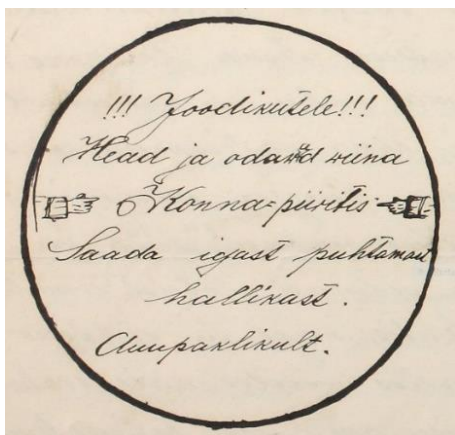 !!! Joodikutele!!!
Head ja odavad wiina
Konna=piiritis
Saada igast puhtamast
hallikast.
Auupaklikult.